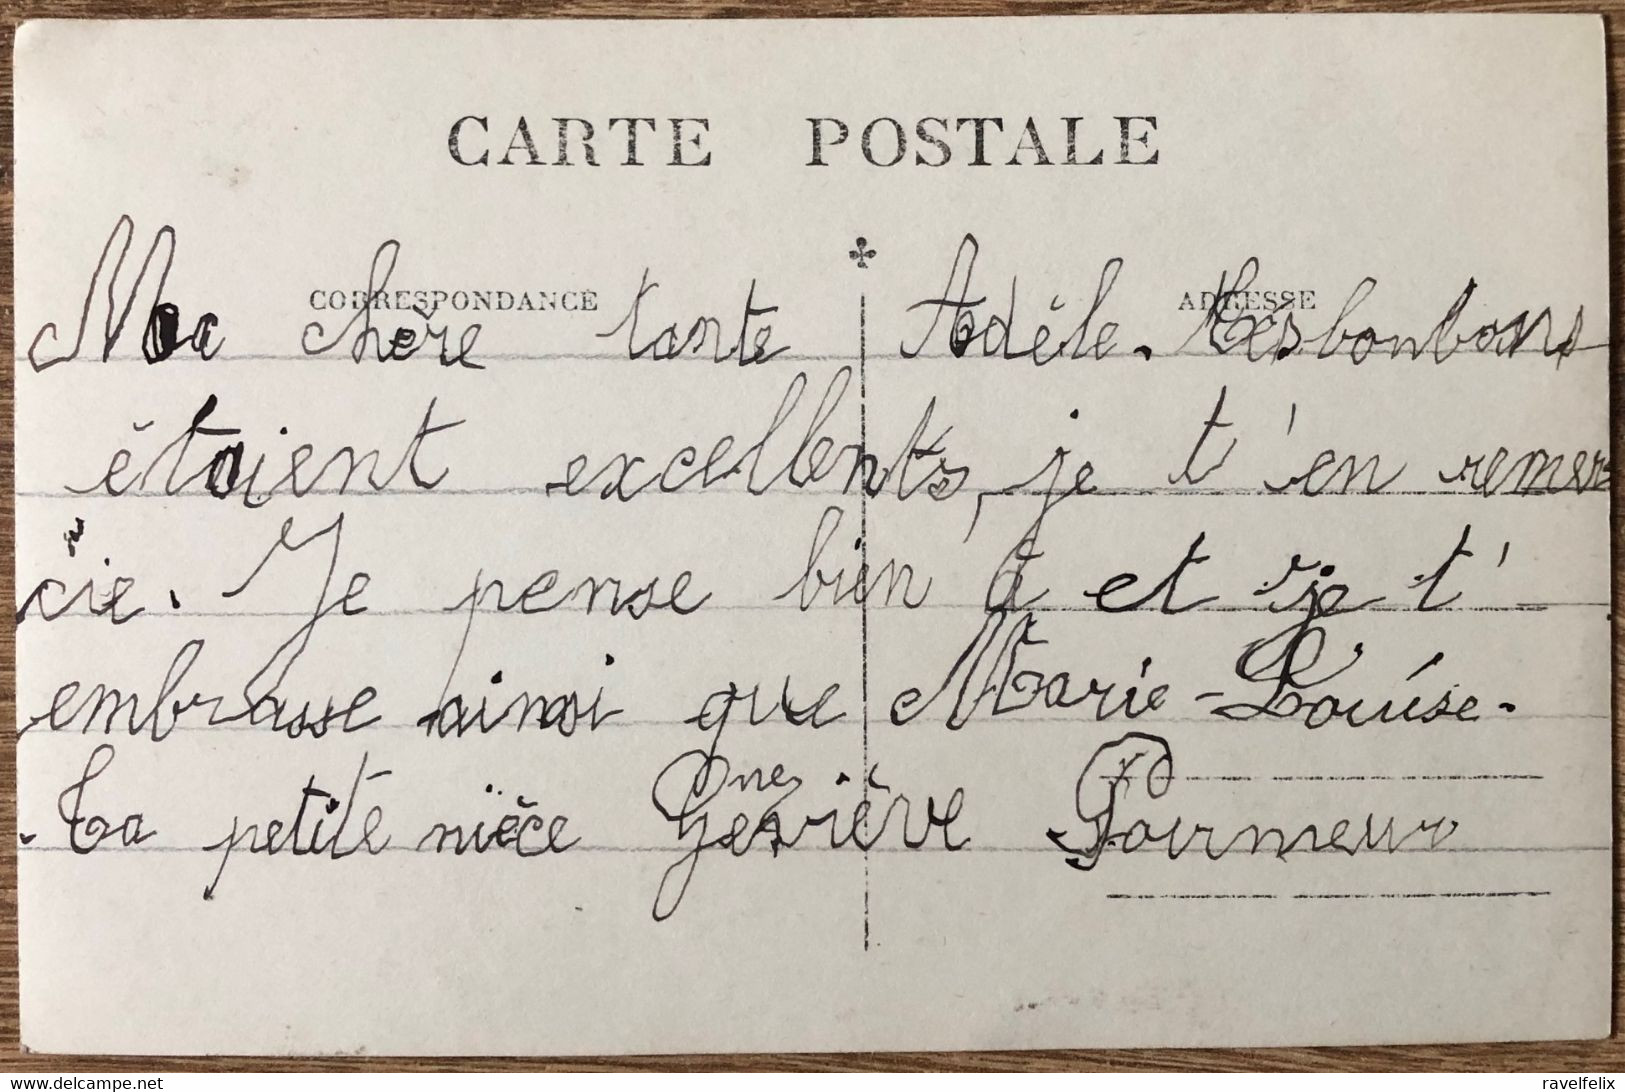 CARTE POSTALE
CORRESPONDANCE
ADRESSE
Ma chère tante Adèle. tes bonbons
étaient excellents, je t'en remer
cie. Je pense bien à et je t'
embrasse ainsi que Marie-Louise.
Ta petite nièce Geneviève
delcampe.net
ravelfelix